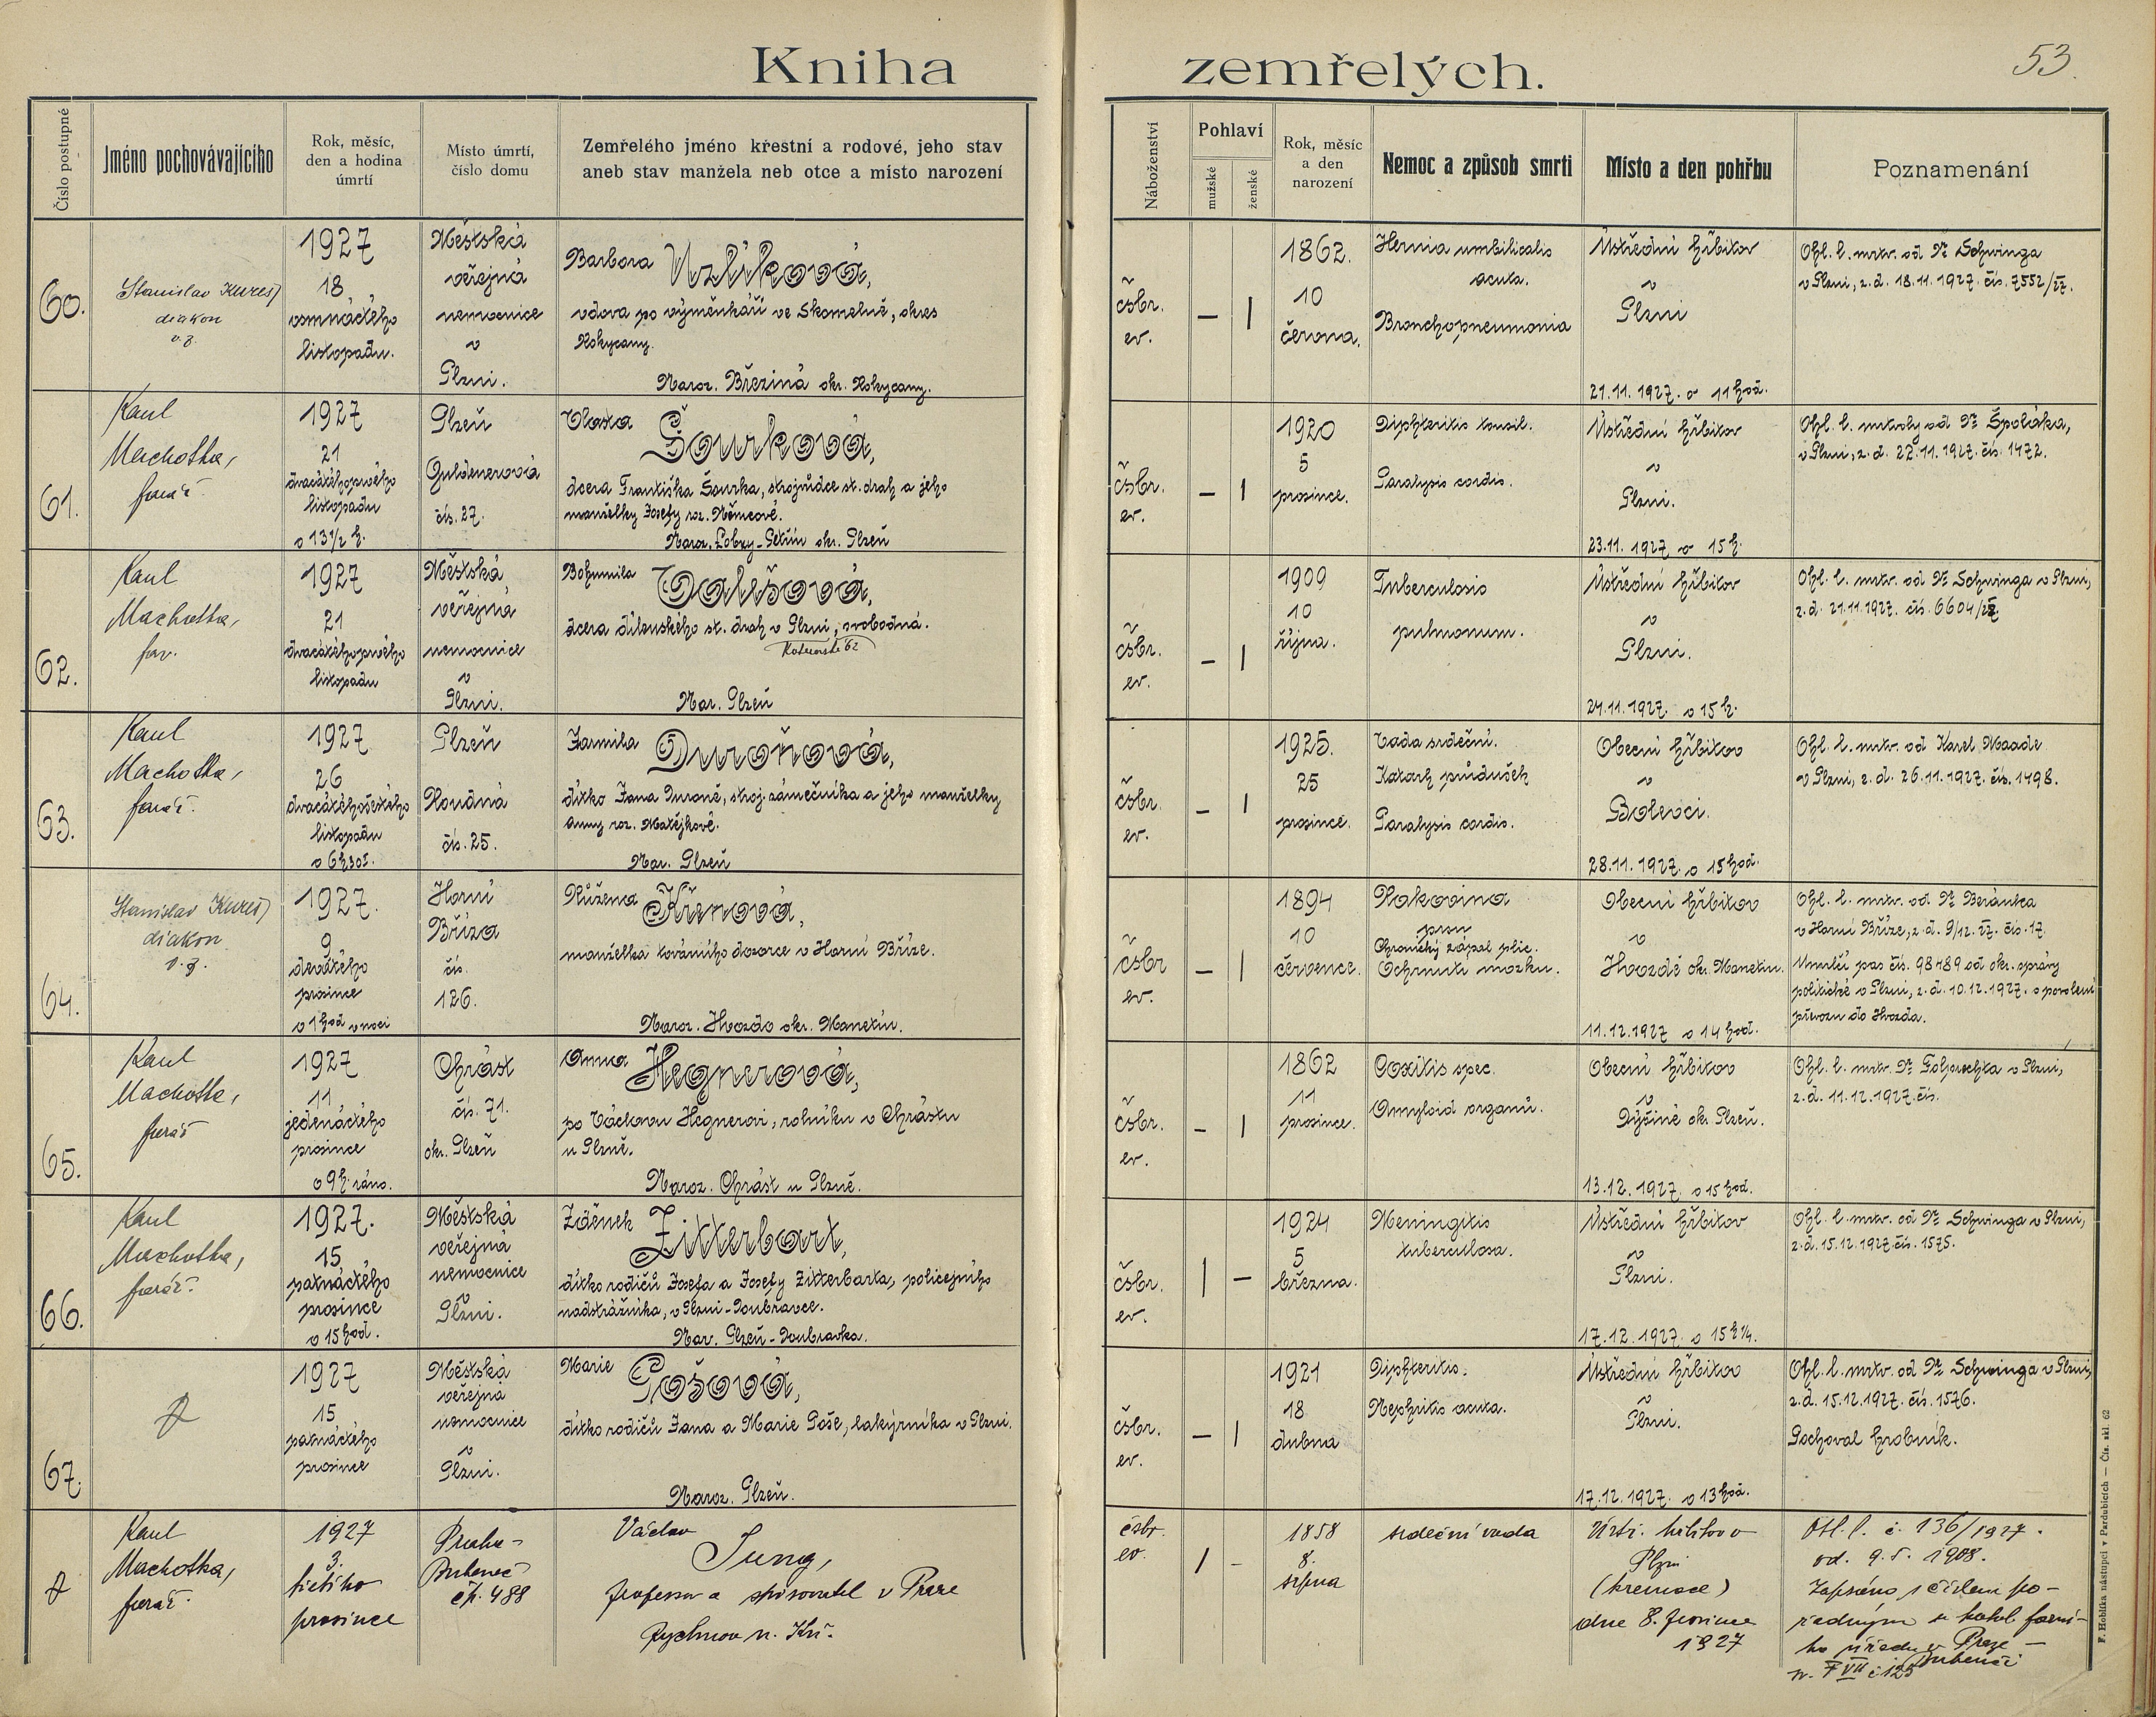 Kniha zemřelých.
53.
Číslo postupné
Jméno pochovávajícího
Rok, měsíc,
den a hodina
úmrtí
Místo úmrtí,
číslo domu
Zemřelého jméno křestní a rodové, jeho stav
aneb stav manžela neb otce a místo narození
Náboženství
Pohlaví
mužské
ženské
Rok, měsíc
a den
narození
Nemoc a způsob smrti
Místo a den pohřbu
Poznamenání
60.
Stanislav Kureš
diakon
v. z.
1927
18
osmnáctého
listopadu.
Městská
veřejná
nemocnice
v
Plzni.
Barbora Uzlíková,
vdova po výměnkáři ve Skomelně, okres
Rokycany.
Naroz. Březina okr. Rokycany.
čsbr.
ev.
— |
1862.
10
června.
Hernia umbilicalis
acuta.
Bronchopneumonia
Ústřední hřbitov
v
Plzni
21.11.1927. o 11 hod.
Ohl. l. mrtv. od Dr Schwinga
v Plzni, z. d. 18.11.1927. čís. 7552/27.
61.
Karel
Machotka,
farář.
1927
21
dvacátéhoprvého
listopadu
o 13 1/2 h.
Plzeň
Guldenerová
čís. 27.
Vlasta Šourková,
dcera Františka Šourka, strojvůdce st. drah a jeho
manželky Josefy roz. Němcové.
Naroz. Lobzy-Petřín okr. Plzeň
čsbr.
ev.
— |
1920
5
prosince.
Diphteritis tonsil.
Paralysis cordis.
Ústřední hřbitov
v
Plzni.
23.11.1927 o 15 h.
Ohl. l. mrtvoly od Dr Špoláka,
v Plzni, z. d. 22.11.1927. čís. 1472.
62.
Karel
Machotka,
far.
1927
21
dvacátéhoprvého
listopadu
Městská
veřejná
nemocnice
v
Plzni.
Bohumila Valešová,
dcera dílenského st. drah v Plzni, svobodná.
Nar. Plzeň
čsbr.
ev.
— |
1909
10
října.
Tuberculosis
pulmonum.
Ústřední hřbitov
v
Plzni.
24.11.1927. o 15 h.
Ohl. l. mrtv. od Dr Schwinga v Plzni,
z. d. 21.11.1927. čís. 6604/27
63.
Karel
Machotka,
farář.
1927
26
dvacátéhošestého
listopadu
o 6 h 30 .
Plzeň
Roudná
čís. 25.
Jarmila Duroňová,
dítko Jana Duroně, stroj. zámečníka a jeho manželky
Anny roz. Matějkové.
Nar. Plzeň
čsbr.
ev.
— |
1925.
25
prosince.
Vada srdeční.
Katarh průdušek
Paralysis cordis.
Obecní hřbitov
v
Bolevci.
28.11.1927. o 15 hod.
Ohl. l. mrtv. od Karel Maade
v Plzni, z. d. 26.11.1927. čís. 1498.
64.
Stanislav Kureš
diakon
v. z.
1927.
9
devátého
prosince
o 1 hod v noci
Horní
Bříza
čís.
126.
Růžena Křenová,
manželka továrního dozorce v Horní Bříze.
Naroz. Hvozdo okr. Manetín.
čsbr
ev.
— |
1894
10
července.
Rakovina
prsu
Chronický zápal plic.
Ochrnutí mozku.
Obecní hřbitov
v
Hvozdě okr. Manetín.
11.12.1927 o 14 hod.
Ohl. l. mrtv. od Dr Beránka
v Horní Bříze, z. d. 9/12. 27. čís. 17.
Umrlčí pas čís. 98489 od okr. správy
politické v Plzni, z. d. 10.12.1927. o povolení
převozu do Hvozda.
65.
Karel
Machotka,
farář
1927
11
jedenáctého
prosince
o 9 h. ráno.
Chrást
čís. 71.
okr. Plzeň
Anna Hegnerová,
po Václavu Hegnerovi, rolníku v Chrástu
u Plzně.
Naroz. Chrást u Plzně.
čsbr.
ev.
— |
1862
11
prosince.
Coxitis spec.
Amyloid organů.
Obecní hřbitov
v
Dýšině okr. Plzeň.
13.12.1927. o 15 hod.
z. d. 11.12.1927. čís.
66.
Karel
Machotka,
farář.
1927.
15
patnáctého
prosince
o 15 hod.
Městská
veřejná
nemocnice
v
Plzni.
Zdeněk Zitterbart,
dítko rodičů Josefa a Josefy Zitterbarta, policejního
nadstrážníka, v Plzni-Doubravce.
Nar. Plzeň-Doubravka.
čsbr.
ev.
| —
1924
5
března.
Meningitis
tuberculosa.
Ústřední hřbitov
v
Plzni.
17.12.1927. o 15 h 1/4.
Ohl. l. mrtv. od Dr Schwinga v Plzni,
z. d. 15.12.1927. čís. 1575.
67.
1927
15
patnáctého
prosince
Městská
veřejná
nemocnice
v
Plzni.
Marie Pošová,
dítko rodičů Jana a Marie Poše, lakýrníka v Plzni.
Naroz. Plzeň.
čsbr.
ev.
— |
1921
18
dubna
Diphteritis.
Nephritis acuta.
Ústřední hřbitov
v
Plzni.
17.12.1927. o 13 hod.
Ohl. l. mrtv. od Dr Schwinga v Plzni,
z. d. 15.12.1927. čís. 1576.
Pochoval hrobník.
Karel
Machotka,
farář.
1927
3.
třetího
prosince
Praha-
Bubeneč
čp. 488
Václav
Jung,
professor a spisovatel v Praze
Rychnov n. Kn.
čsbr.
ev.
| -
1858
8.
srpna
srdeční vada
Ústř. hřbitov v
Plzni
(kremace)
dne 8. prosince
1927
Ohl. l. č. 136/1927.
od. 9. 5. 1908.
Zapsáno s číslem po-
řadným u farní-
ho úřadu v Praze —
Bubenči
F. Hoblíka nástupci v Pardubicích — Čís. skl. 62